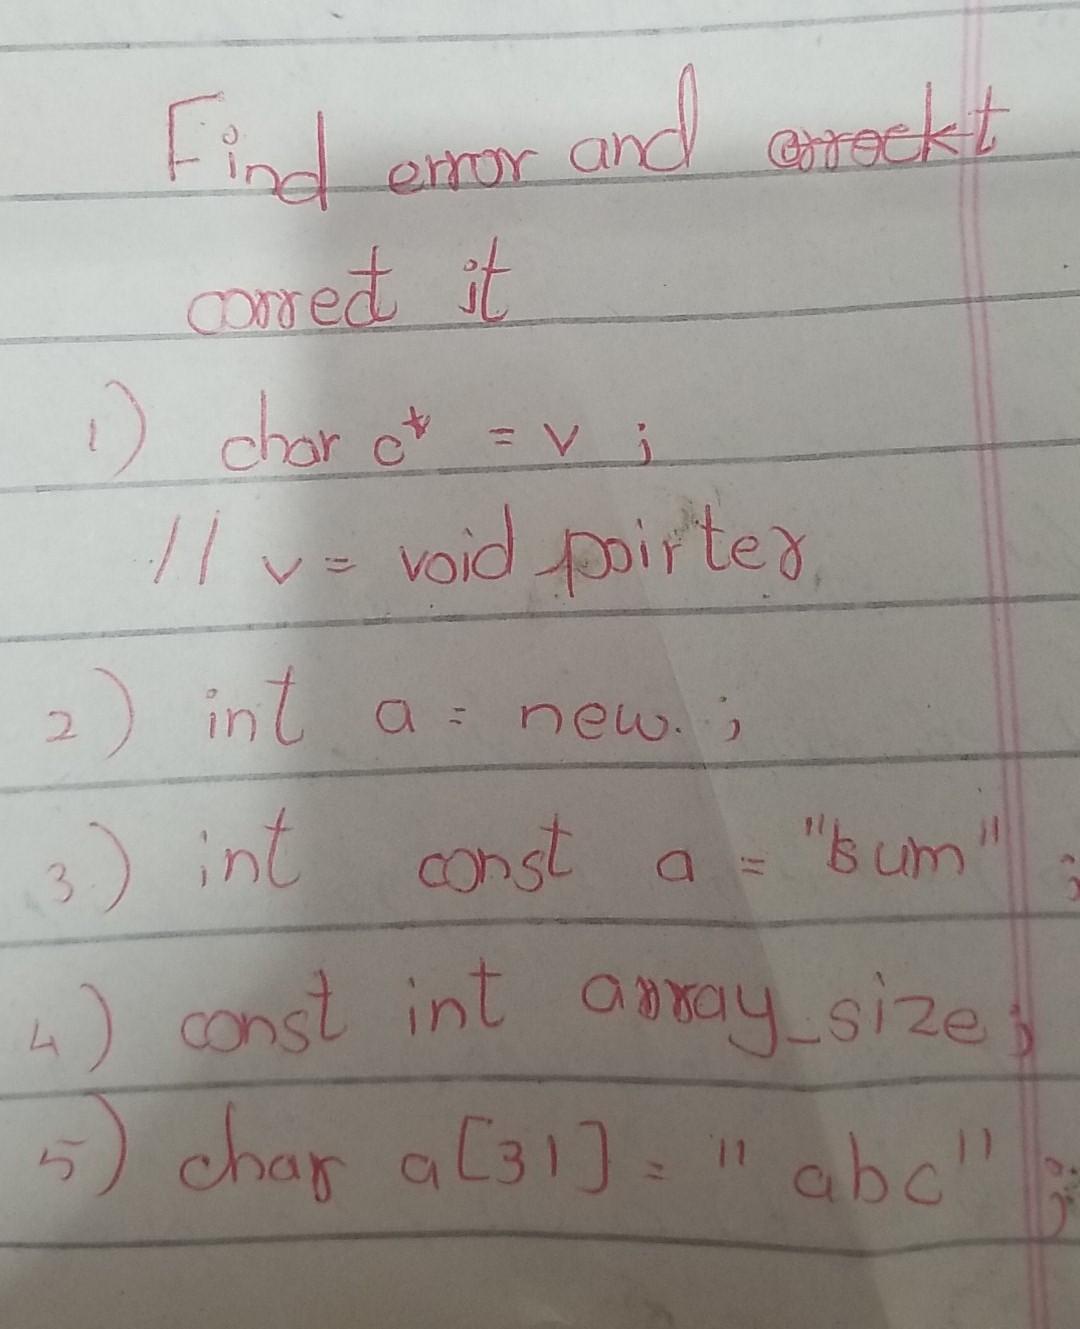 Find error and correckt
correct it
1) char c* = v ;
// v = void poirter
2) int a = new ;
3) int const a = "sum" ;
4) const int array_size ;
5) char a[31] = "abc" ;